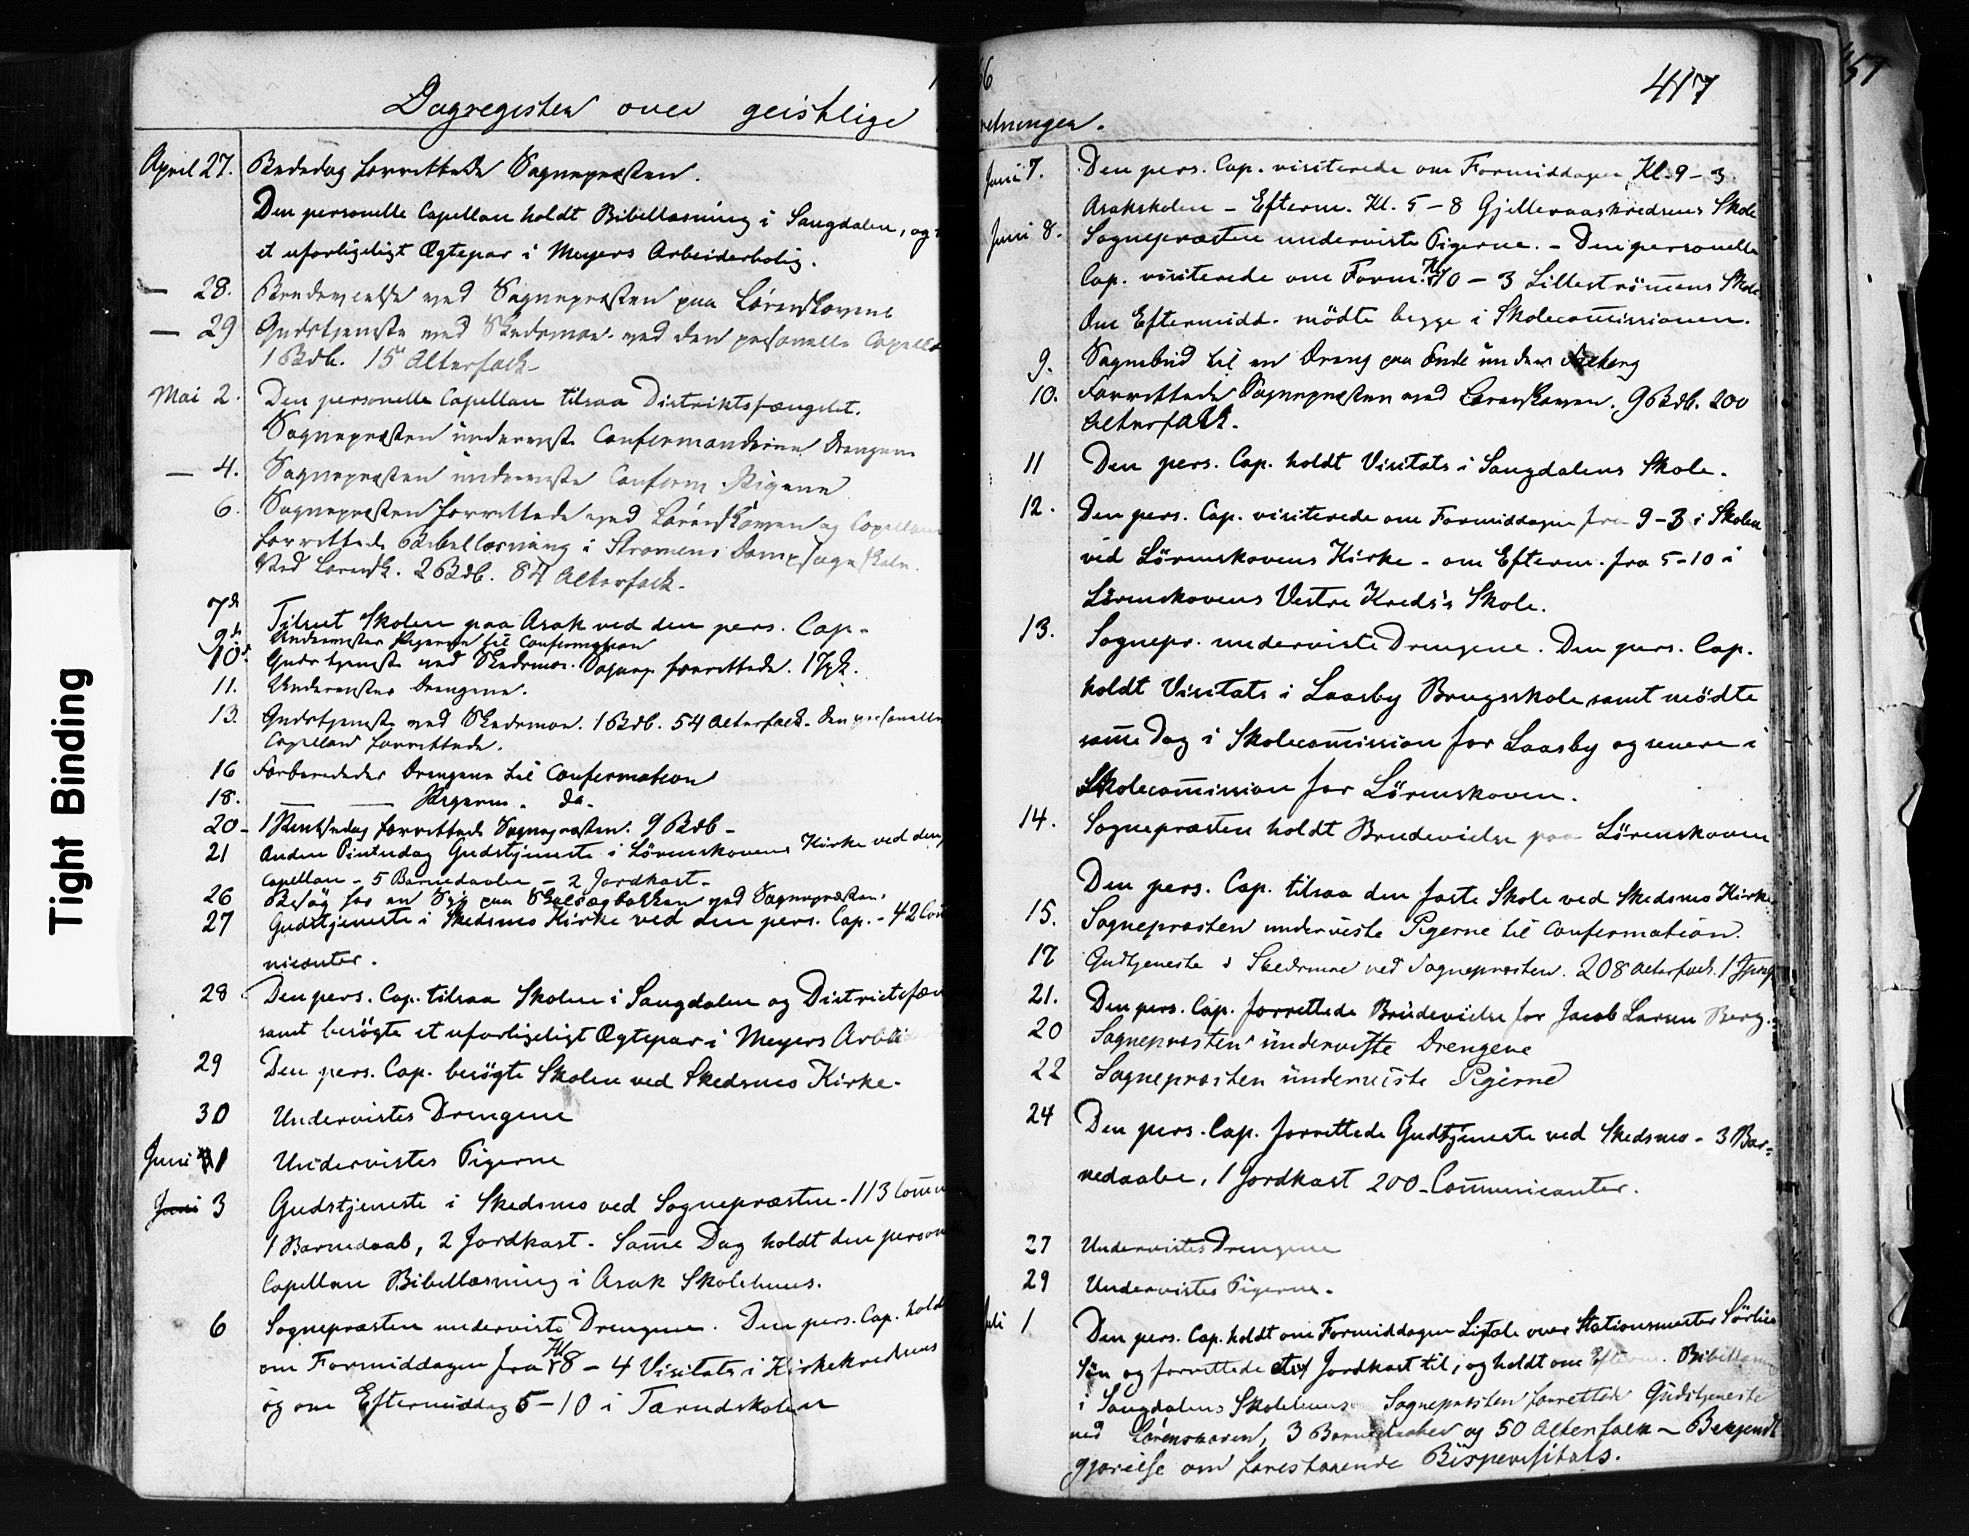 Tight Binding
Dagregister over geistlige
April 27. Bededag forrettede Sognepræsten.
Den personelle Capellan holdt Bibellæsning i Sangdalen, og
et uforligeligt Ægtepar i Meyers Arbeiderbolig.
— 28. Brudevielse ved Sognepræsten paa Lørenskoven
— 29 Gudstjeneste ved Skedsmoe ved den personelle Capell
1 Bdb. 15 Alterfolk
Mai 2. Den personelle Capellan tilsaa Distriktsfængslet.
Sognepræsten underviste Confirmanderne Drengene
— 4. Sognepræsten underviste Conferm. Pigerne
6. Sognepræsten forrettede ved Lørenskoven og Capellan
forrettede Bibellæsning i Strømens Dampsagskole.
Ved Lørensk. 2 Bdb. 84 Alterfolk.
7de Tilseet Skolen paa Asak ved den pers. Cap.
9de Undervistes Pigerne til Confirmation
10de Gudstjeneste ved Skedsmoe. Sognep. forrettede. 1 Jpk.
11. Undervistes Drengene.
13. Gudstjeneste ved Skedsmoe. 1 Bdb. 54 Alterfolk. Den personelle
Capellan forrettede.
16 Forberededes Drengene til Confirmation
18. — — Pigerne. do.
20 1 Pintsedag forrettede Sognepræsten. 9 Bdb
21 Anden Pintsedag Gudstjeneste i Lørenskovens Kirke ved den
Capellan – 5 Barnedaaber – 2 Jordkast.
26 Besøg hos en Syg paa ved Sognepræsten.
27 Gudstjeneste i Skedsmo Kirke ved den pers. Cap. – 42 Com
nicanter.
28 Den pers. Cap. tilsaa Skolen i Sangdalen og Districtsfæn
samt besøgte et uforligeligt Ægtepar i Meyers Arbei
29 Den pers. Cap. besøgte Skolen ved Skedsmo Kirke.
30 Undervistes Drengene
Juni 1 Undervistes Pigerne
Juni 3 Gudstjeneste i Skedsmo ved Sognepræsten – 113 Comm
1 Barnedaab, 2 Jordkast. Same Dag holdt den person
Capellan Bibellæsning i Asak Skolehuus.
6 Sognepræsten underviste Drengene. Den pers. Cap. hold
om Formiddagen fra Kl 8 – 4 Visitats i Kirkekredsens
og om Eftermiddag 5 – 10 i Tærudskolen
66
417
retninger.
Juni 7. Den pers. Cap. visiterede om Formiddagen Kl. 9 – 3
Asakskolen – Efterm. Kl. 5 – 8 Gjelleraaskredsens Skole
Juni 8. Sognepræsten underviste Pigerne. – Den personelle
Cap. visiterede om Form. Kl 10 – 3 Lillestrømens Skole
Om Eftermidd. mødte begge i Skolecomissionen.
9. Sognebud til en Dreng paa Ende under
10. Forrettede Sognepræsten ved Lørenskoven. 9 Bdb. 200
Alterfolk.
11 Den pers. Cap. holdt Visitats i Sangdalens Skole.
12. Den pers. Cap. visiterede om Formiddagen fra 9 – 3 i Skolen
ved Lörenskovens Kirke – om Efterm. fra 5 – 10 i
Lörenskovens Vestre Kreds's Skole.
13. Sognepr. underviste Drengene. Den pers. Cap.
holdt Visitats i Laasby Brugsskole samt mødte
same Dag i Skolecomission for Laasby og senere i
Skolecomission for Lörenskoven.
14. Sognepræsten holdt Brudevielse paa Lörenskoven
Den pers. Cap. tilsaa den faste Skole ved Skedsmo Kirke
15. Sognepræsten underviste Pigerne til Confermation.
17 Gudtjeneste i Skedsmoe ved Sognepræsten. 208 Alterfolk. 1
21. Den pers. Cap. forrettede Brudevielse for Jacob Larsen Berg.
20 Sognepræsten underviste Drengene
22 Sognepræsten underviste Pigerne
24 Den pers. Cap. forrettede Gudstjeneste ved Skedsmo – 3 Bar-
nedaabe, 1 Jordkast 200 Communicanter.
27 Undervistes Drengene
29 Undervistes Pigerne.
Juli 1 Den pers. Cap. holdt om Formiddagen Ligtale over Stationsmester Sörlies
Søn og forrettede Jordkast til, og holdt om Efterm. Bibellæsn
i Sangdalens Skolehuus Sognepræsten forrettede Gudstjeneste
ved Lørenskoven, 3 Barnedaaber og 50 Alterfolk – Bekjendt
gjørelse om forestaaende Bispevisitats.